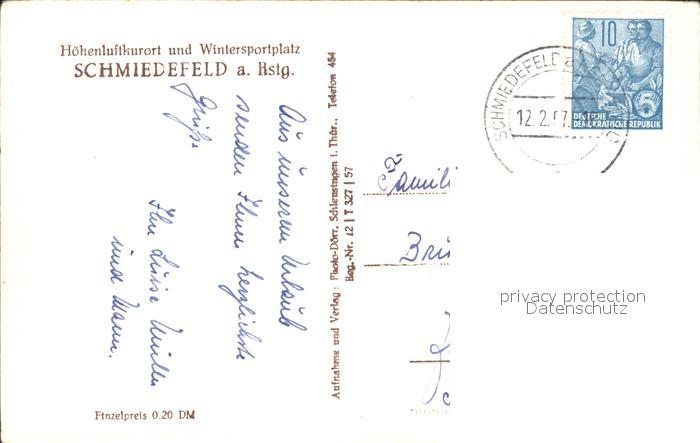 Höhenluftkurort und Wintersportplatz
SCHMIEDEFELD a. Rstg.
Aus unserem Urlaub
senden Ihnen herzlichste
Grüße
Ihre Luise Müller
und Mann.
Einzelpreis 0.20 DM
Aufnahme und Verlag: Photo-Dörr, Schleusingen i. Thür., Telefon 454
Reg.-Nr. 12 | T 327 | 57
10
DEUTSCHE
DEMOKRATISCHE REPUBLIK
5
SCHMIEDEFELD
12.2.57
Famili
Brü
privacy protection
Datenschutz